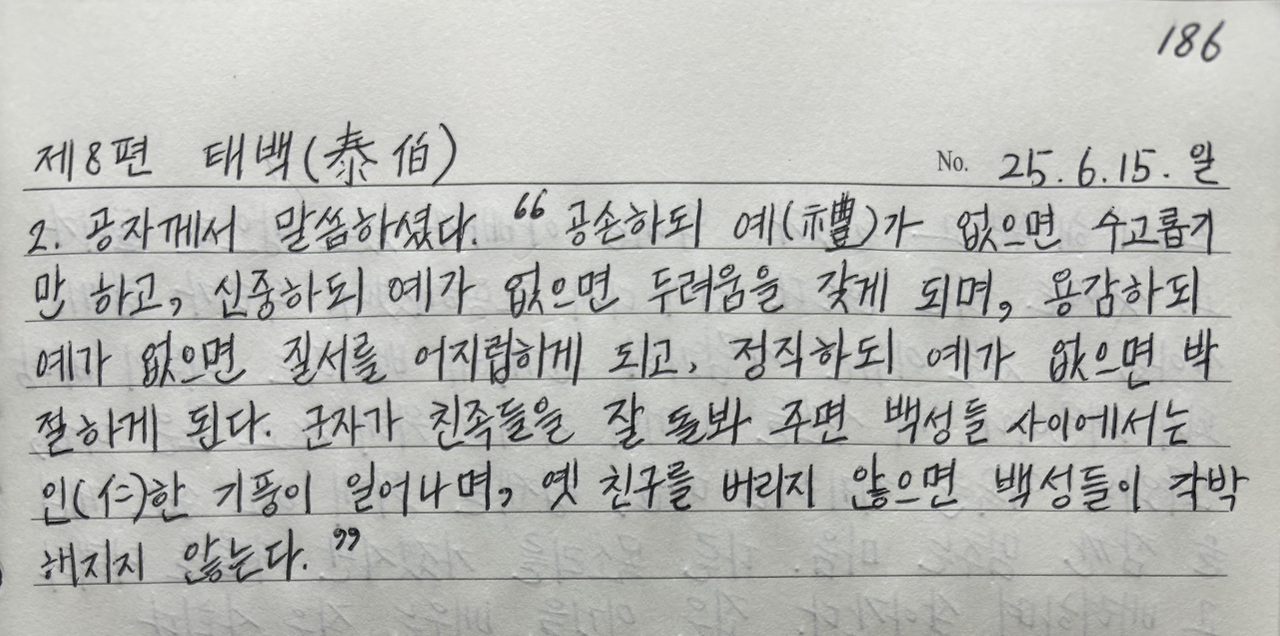 186
제8편 태백(泰伯) No. 25.6.15. 일
2. 공자께서 말씀하셨다. “공손하되 예(禮)가 없으면 수고롭기
만 하고, 신중하되 예가 없으면 두려움을 갖게 되며, 용감하되
예가 없으면 질서를 어지럽하게 되고, 정직하되 예가 없으면 박
절하게 된다. 군자가 친족들을 잘 돌봐 주면 백성들 사이에서는
인(仁)한 기풍이 일어나며, 옛 친구를 버리지 않으면 백성들이 각박
해지지 않는다.”